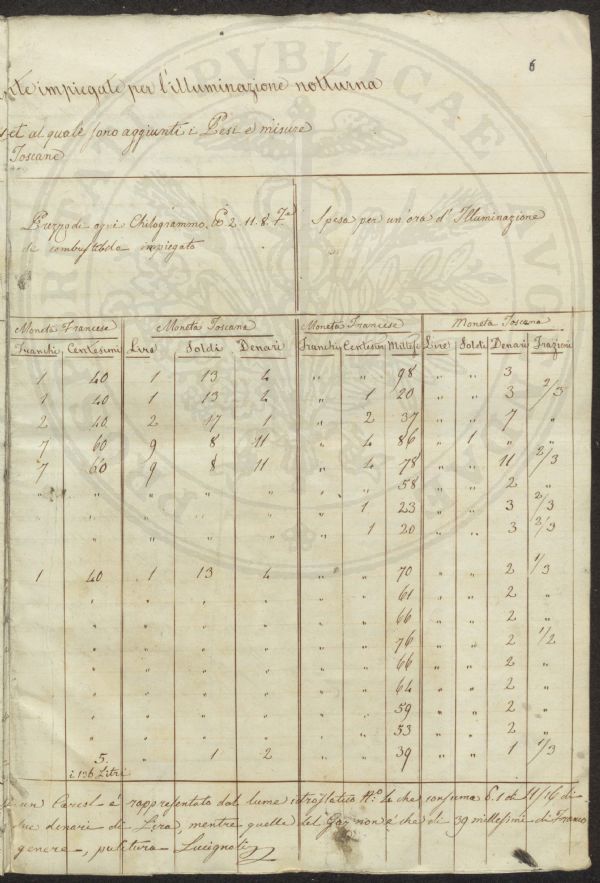 6
impiegate per l'illuminazione notturna
et al quale sono aggiunti i Pesi e misure
Toscane
Prezzo di ogni Chilogrammo 2. 11. 8.
di combustibile impiegato
Spesa per un'ora d'Illuminazione
Moneta Francese Moneta Toscana Moneta Francese Moneta Toscana
Franchi Centesimi Lire Soldi Denari Franchi Centesimi Millesi Lire Soldi Denari Frazioni
1 40 1 13 4 " " 98 " " 3
1 40 1 13 4 " 1 20 " " 3 2/3
2 40 2 17 1 " 2 37 " " 7 "
7 60 9 8 11 " 4 86 " 1 " "
7 60 9 8 11 " 4 78 " " 11 2/3
" " " " " " " 58 " " 2 "
" " " " " " 1 23 " " 3 2/3
" " " " " 1 20 " " 3 2/3
1 40 1 13 4 " " 70 " " 2 1/3
" " " " " " " 61 " " 2 "
" " " " " " " 66 " " 2 "
" " " " " " " 76 " " 2 1/2
" " " " " " " 66 " " 2 "
" " " " " " " 64 " " 2 "
" " " " " " " 59 " " 2 "
" " " " " " " 53 " " 2 "
5. " 1 2 " " 39 " " 1 1/3
i 136 Litri
un Carcel è rappresentato dal lume idrostatico N.o 4 che consuma 6.1 di 11/16 di
due denari di Lira, mentre quella del Gaz non è che di 39 millesimi di Franco
genere, pulitura Lucignoli